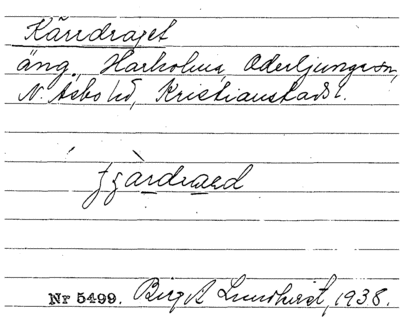 Kärrdraget
äng, Harholma, Oderljunga sn,
N. Åsbo hd, Kristianstads l.
Nr 5499. Birgit Lundkvist, 1938.